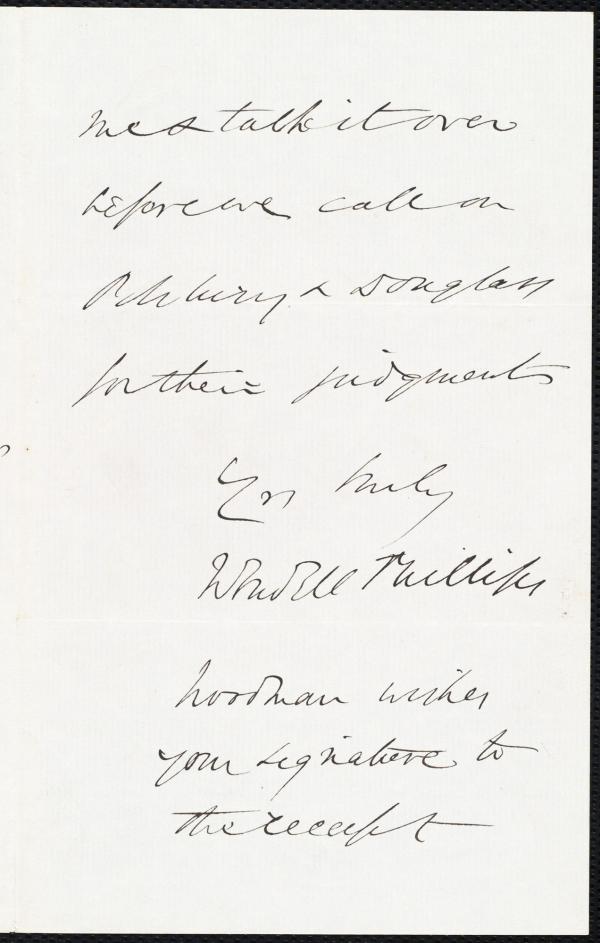 me & talk it over
before we call on
Pillsbury & Douglass
for their judgments
Yrs truly
Wendell Phillips
Woodman wishes
your signature to
the receipt